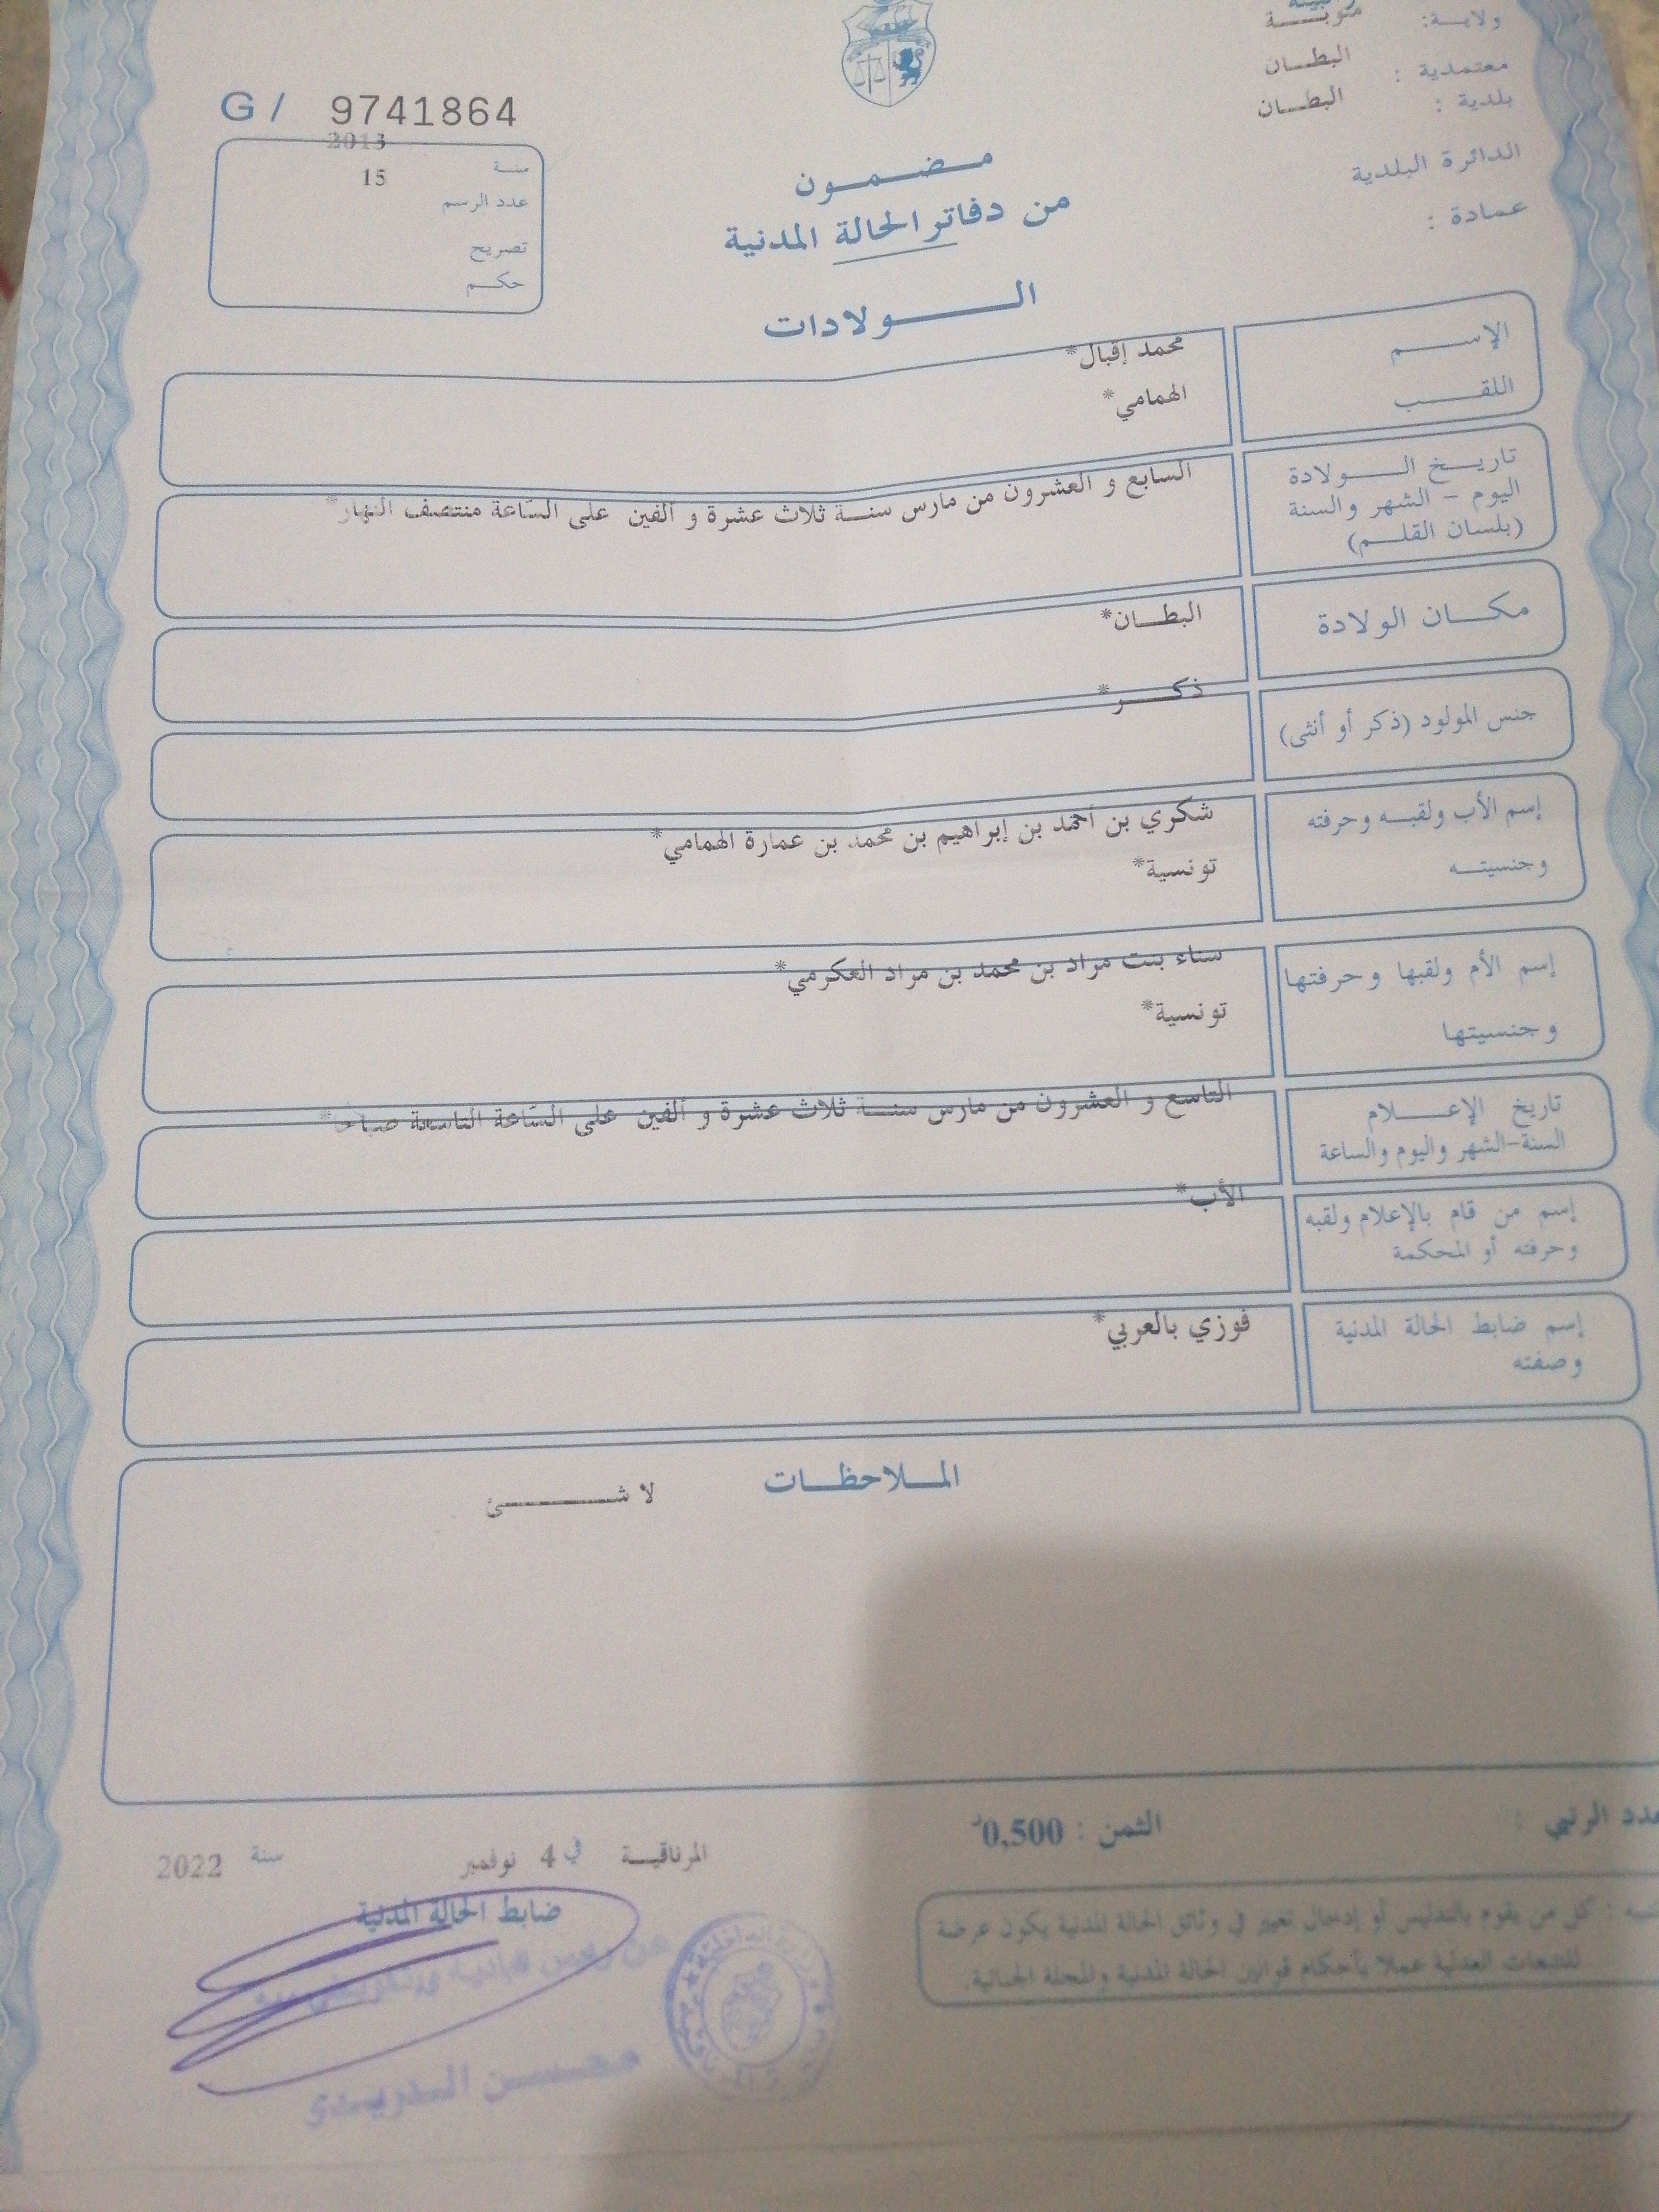 ولاية: منوبة
معتمدية : البطان
بلدية : البطان
الدائرة البلدية
عمادة :
G/ 9741864
سنة 2013
عدد الرسم 15
تصريح
حكم
مضمون
من دفاتر الحالة المدنية
الولادات
الإسم محمد إقبال*
اللقب الهمامي*
تاريخ الولادة
اليوم - الشهر والسنة
(بلسان القلم)
السابع و العشرون من مارس سنة ثلاث عشرة و ألفين على الساعة منتصف النهار*
مكان الولادة البطان*
جنس المولود (ذكر أو أنثى) ذكر*
إسم الأب ولقبه وحرفته
وجنسيته
شكري بن أحمد بن إبراهيم بن محمد بن عمارة الهمامي*
تونسية*
إسم الأم ولقبها وحرفتها
وجنسيتها
سناء بنت مراد بن محمد بن مراد العكرمي*
تونسية*
تاريخ الإعلام
السنة-الشهر واليوم والساعة
التاسع و العشرون من مارس سنة ثلاث عشرة و ألفين على السّاعة التاسعة صباحا*
إسم من قام بالإعلام ولقبه
وحرفته أو المحكمة
الأب*
إسم ضابط الحالة المدنية
وصفته
فوزي بالعربي*
الملاحظات
لا شئ
الرتبي :
الثمن : 0,500د
المرناقية في 4 نوفمبر سنة 2022
ضابط الحالة المدنية
محسن الدريدي
كل من يقوم بالتدليس أو إدخال تغيير في وثائق الحالة المدنية يكون عرضة
للتتبعات العدلية عملا بأحكام قوانين الحالة المدنية والمجلة الجنائية.